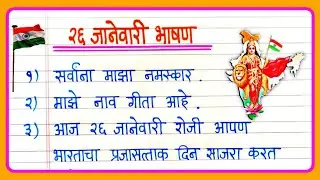 २६ जानेवारी भाषण
१) सर्वांना माझा नमस्कार.
२) माझे नाव गीता आहे.
३) आज २६ जानेवारी रोजी आपण
भारताचा प्रजासत्ताक दिन साजरा करत